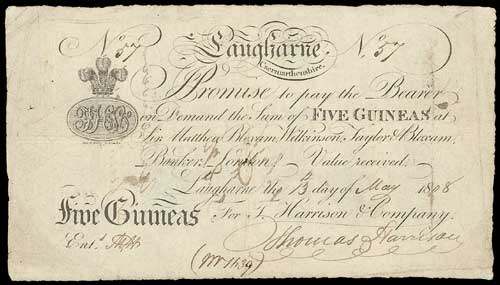 No. 57 Laugharne. No. 57
Caermarthenshire.
I Promise to pay the Bearer
on Demand the Sum of FIVE GUINEAS at
Sir Matthew Bloxam, Wilkinson, Taylor & Bloxam,
Bankers London; Value received.
Laugharne the 13 day of May 1808
Five Guineas For T. Harrison & Company.
Ent.d Thomas Harrison